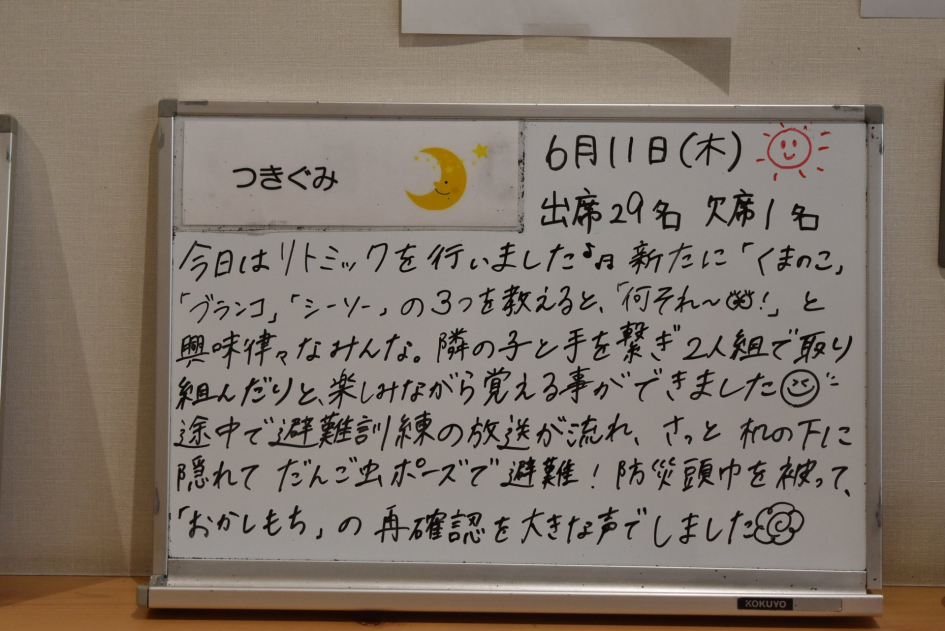 つきぐみ
6月11日(木)
出席29名 欠席1名
今日はリトミックを行いました♪ 新たに「くまのこ」
「ブランコ」「シーソー」の3つを教えると、「何それ〜!」と
興味律々なみんな。隣の子と手を繋ぎ2人組で取り
組んだりと、楽しみながら覚える事ができました
途中で避難訓練の放送が流れ、さっと机の下に
隠れてだんご虫ポーズで避難!防災頭巾を被って、
「おかしもち」の再確認を大きな声でしました
KOKUYO